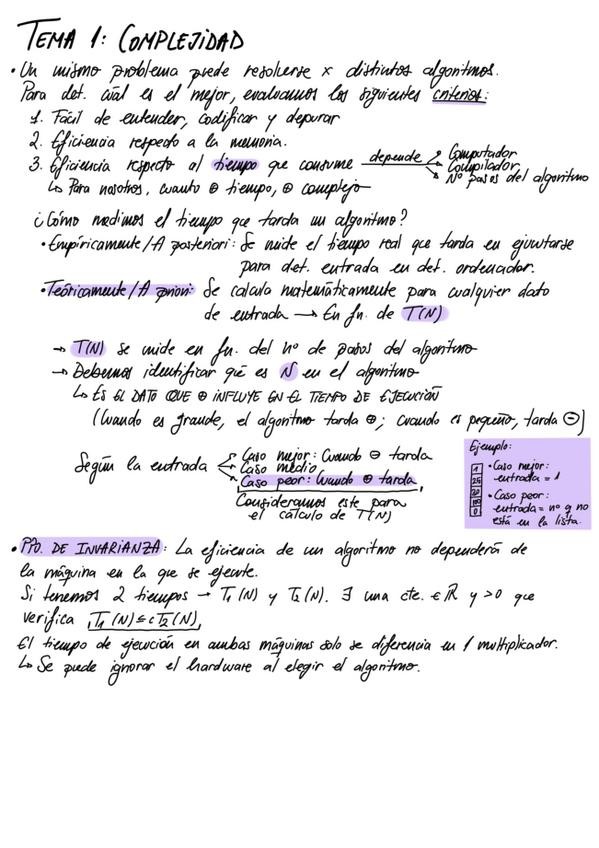 TEMA 1: COMPLEJIDAD
• Un mismo problema puede resolverse x distintos algoritmos.
Para det. cuál es el mejor, evaluamos los siguientes criterios:
1. Fácil de entender, codificar y depurar
2. Eficiencia respecto a la memoria.
3. Eficiencia respecto al tiempo que consume depende → Computador
Compilador
Nº pasos del algoritmo
↳ Para nosotros, cuanto ⊕ tiempo, ⊕ complejo
¿Cómo medimos el tiempo que tarda un algoritmo?
• Empíricamente/A posteriori: Se mide el tiempo real que tarda en ejecutarse
para det. entrada en det. ordenador.
• Teóricamente/A priori: Se calcula matemáticamente para cualquier dato
de entrada → En fn. de T(N)
→ T(N) se mide en fn. del nº de pasos del algoritmo
→ Debemos identificar qué es N en el algoritmo
↳ ES EL DATO QUE ⊕ INFLUYE EN EL TIEMPO DE EJECUCIÓN
(Cuando es grande, el algoritmo tarda ⊕; cuando es pequeño, tarda ⊖)
Según la entrada → Caso mejor: Cuando ⊖ tarda
Caso medio
Caso peor: Cuando ⊕ tarda
Consideramos este para
el cálculo de T(N)
Ejemplo:
1
25
20
100
0
• Caso mejor:
entrada = 1
• Caso peor:
entrada = nº q no
está en la lista.
• PPO. DE INVARIANZA: La eficiencia de un algoritmo no dependerá de
la máquina en la que se ejecute.
Si tenemos 2 tiempos → T₁(N) y T₂(N). ∃ una cte. ∈ ℝ y >0 que
verifica T₁(N) ≤ cT₂(N)
El tiempo de ejecución en ambas máquinas solo se diferencia en 1 multiplicador.
↳ Se puede ignorar el hardware al elegir el algoritmo.